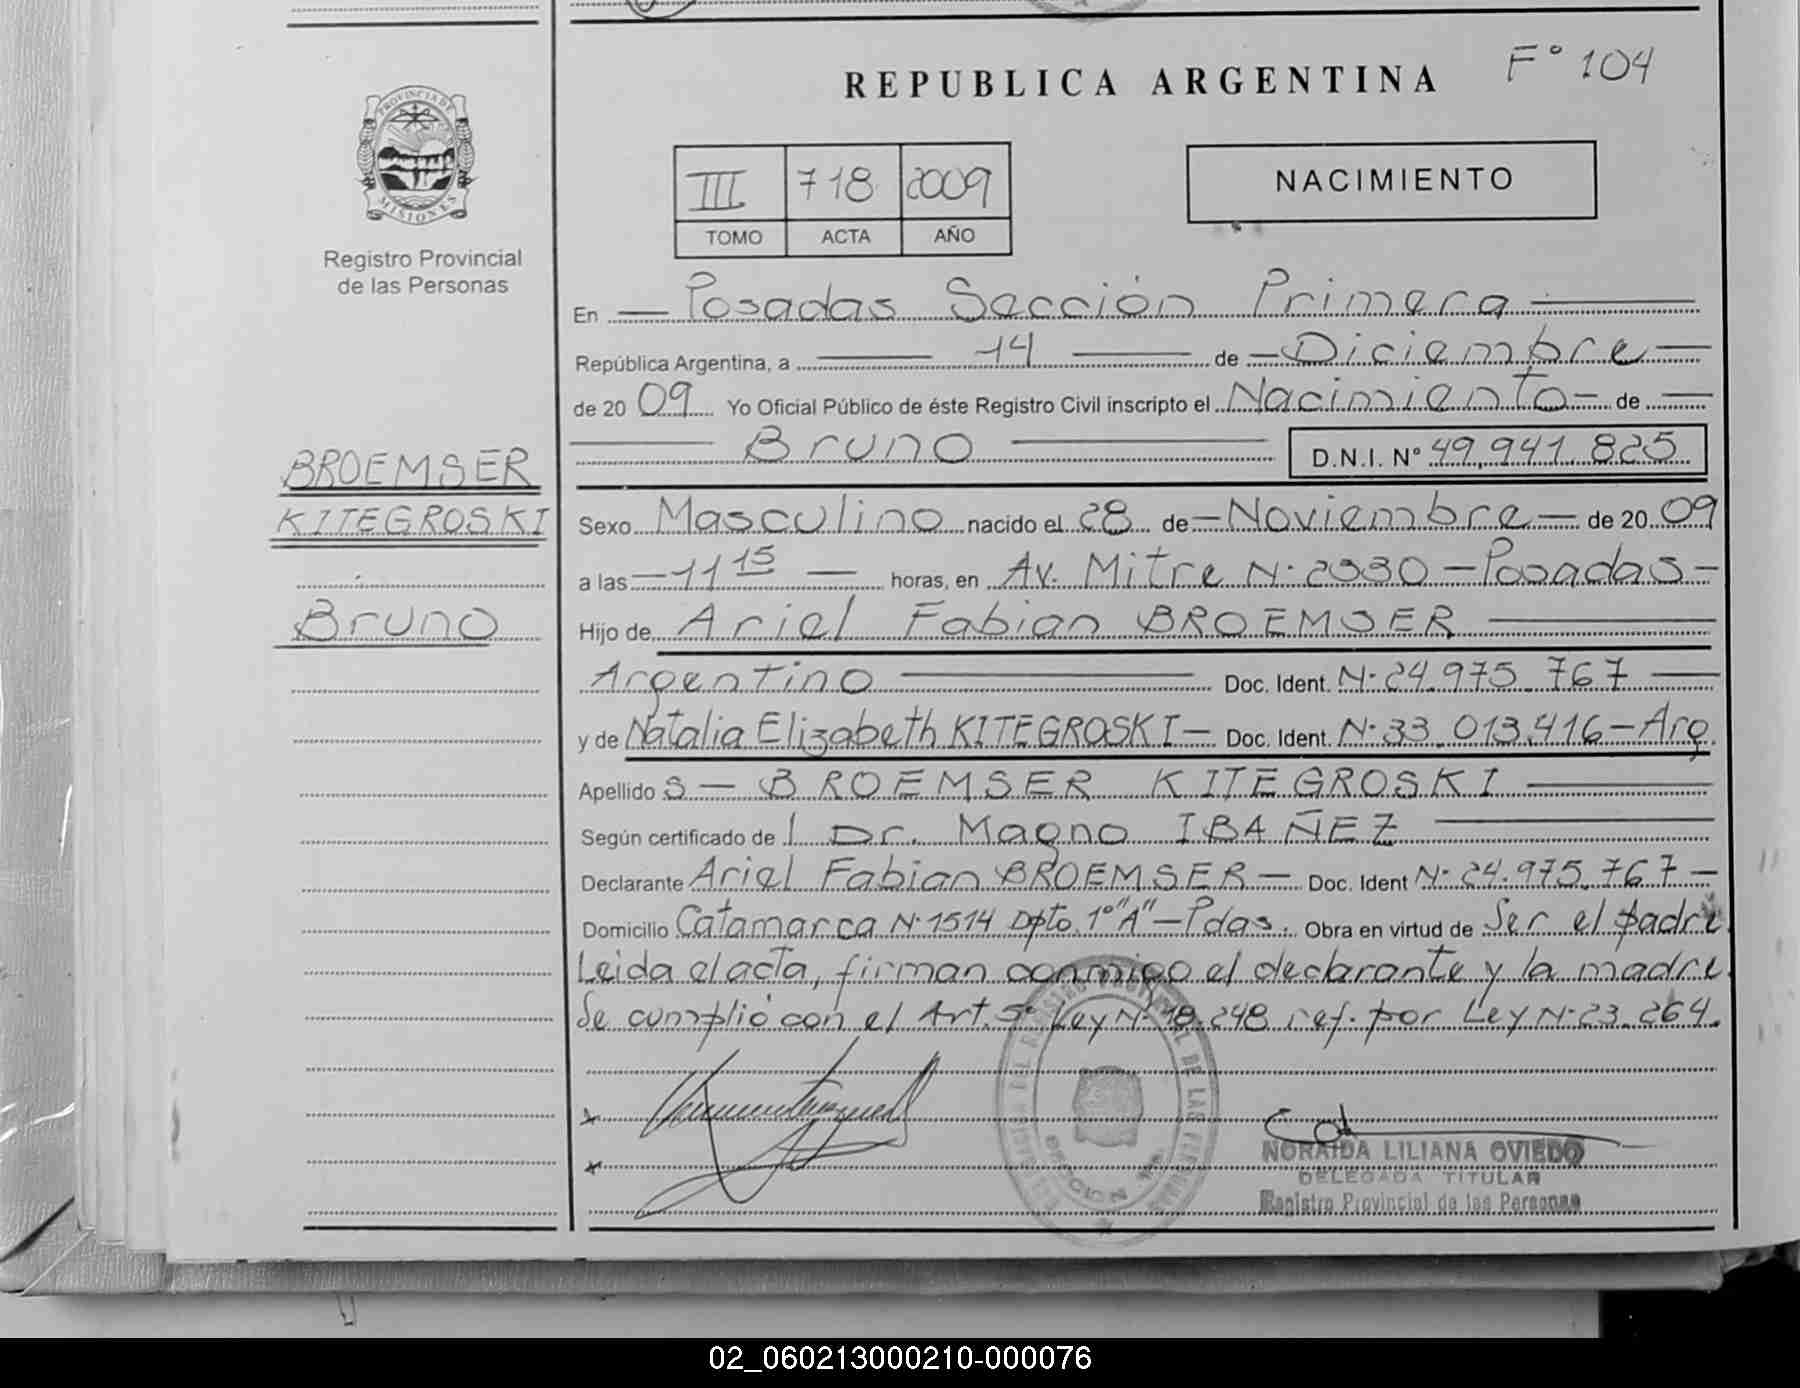 REPUBLICA ARGENTINA
F° 104
PROVINCIA DE
MISIONES
Registro Provincial
de las Personas
III 718 2009
TOMO ACTA AÑO
NACIMIENTO
En — Posadas Sección Primera —
República Argentina, a — 14 — de — Diciembre —
de 20 09 Yo Oficial Público de éste Registro Civil inscripto el Nacimiento — de —
— Bruno — D.N.I. N° 49.941.825
BROEMSER
KITEGROSKI
Bruno
Sexo Masculino nacido el 28 de — Noviembre — de 20 09
a las — 11 15 — horas, en Av. Mitre N· 2330 — Posadas —
Hijo de Ariel Fabian BROEMSER —
Argentino — Doc. Ident. N· 24.975.767 —
y de Natalia Elizabeth KITEGROSKI — Doc. Ident. N· 33.013.416 — Arg.
Apellido s — BROEMSER KITEGROSKI —
Según certificado de l Dr. Magno IBAÑEZ —
Declarante Ariel Fabian BROEMSER — Doc. Ident N· 24.975.767 —
Domicilio Catamarca N· 1514 Dpto. 1° "A" — Pdas. Obra en virtud de Ser el padre
Leida el acta, firman conmigo el declarante y la madre.
Se cumplió con el Art. 5° Ley N· 18.248 ref. por Ley N· 23.264.
x
x
NORAIDA LILIANA OVIEDO
DELEGADA TITULAR
Registro Provincial de las Personas
02_060213000210-000076